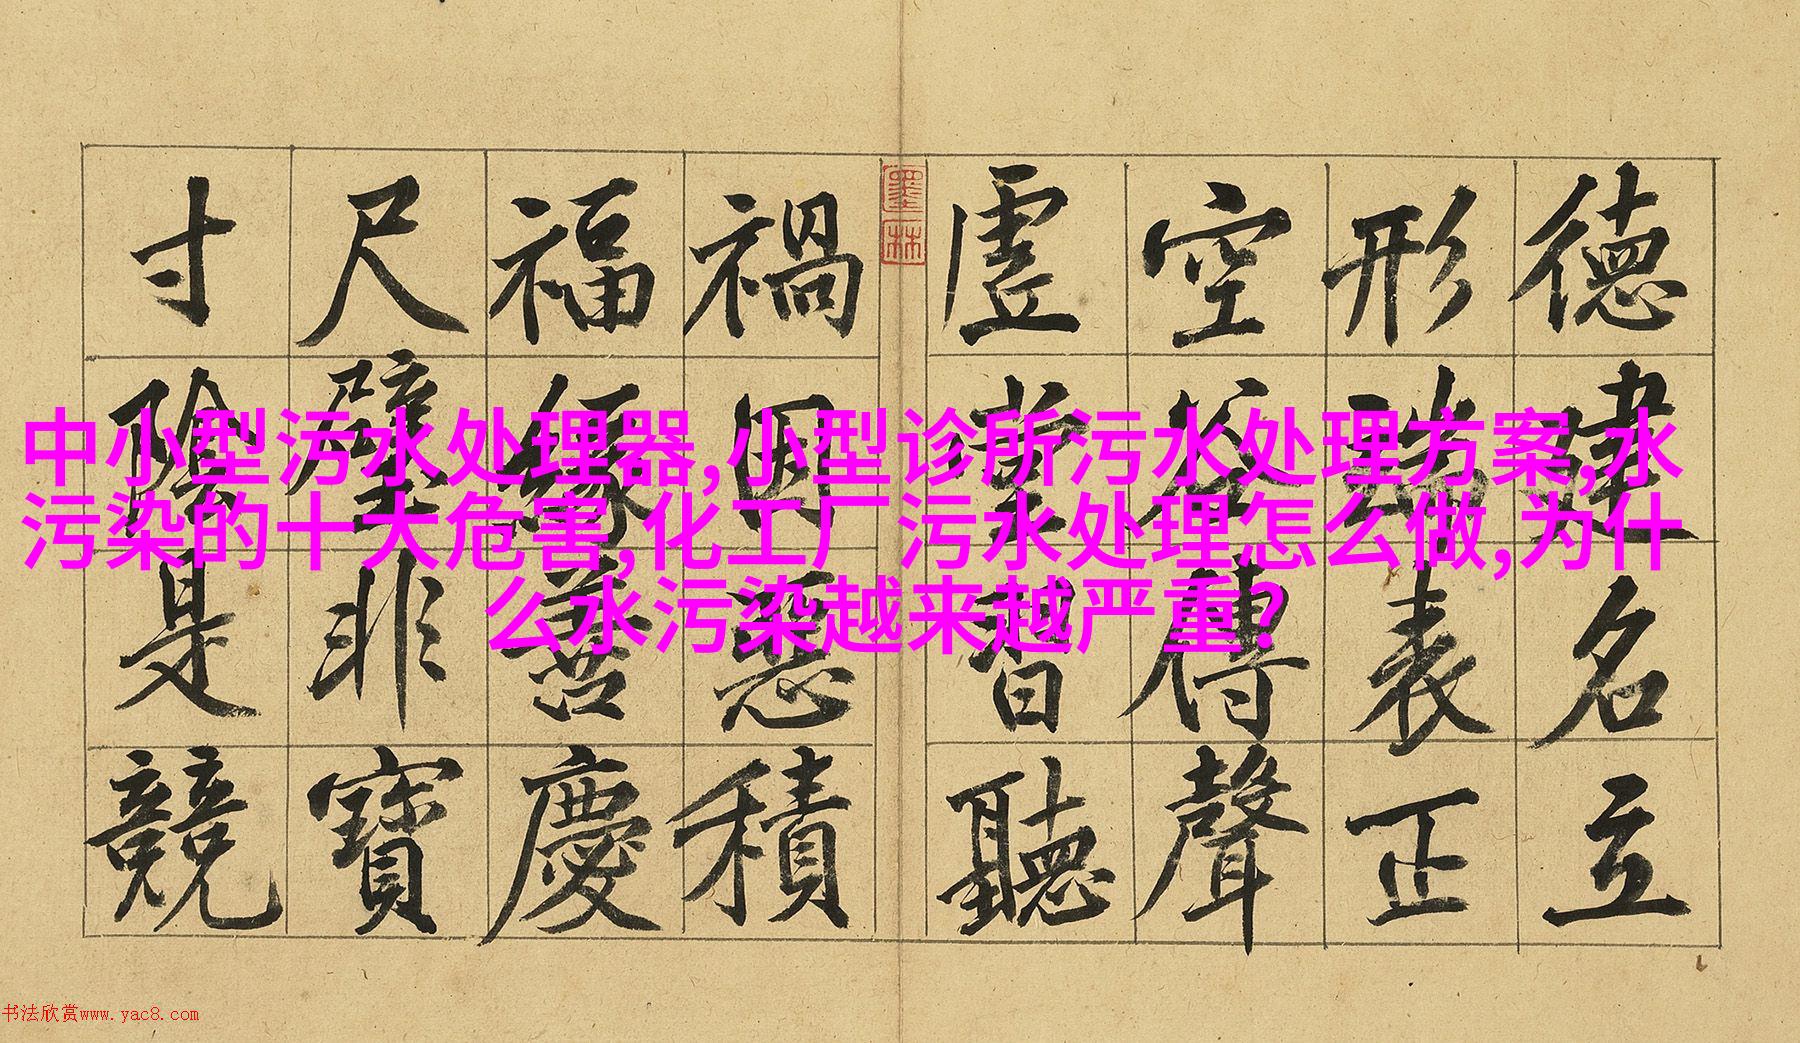 德建名立
形端表正
空谷傳聲
虛堂習聽
禍因惡積
福緣善慶
尺璧非寶
寸陰是競
墨林
中小型污水处理器,小型诊所污水处理方案,水
污染的十大危害,化工厂污水处理怎么做,为什
么水污染越来越严重?
书法欣赏www.yac8.com